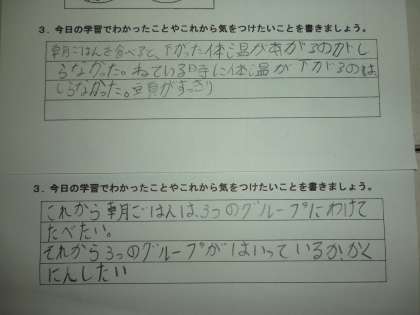 3. 今日の学習でわかったことやこれから気をつけたいことを書きましょう。
朝ごはんを食べると、下がった体温が本が3のかしし
らなかった。ねている時に体温が下がるのは、
しらなかった。豆頁がすっきり
3. 今日の学習でわかったことやこれから気をつけたいことを書きましょう。
これから朝ごはんは、3つのグループにわけて
たべたい。
それから3つのグループがはいっているか、かく
にんしたい